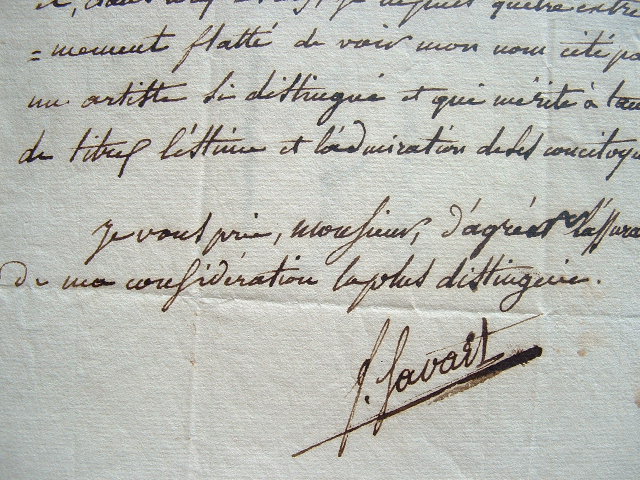 je ne puis qu'être extrê
=mement flatté de voir mon nom cité pa
un artiste si distingué et qui mérite à tan
de titres l'estime et l'admiration de ses concitoye
je vous prie, monsieur, d'agréer l'assura
de ma considération la plus distinguée.
f. Savart